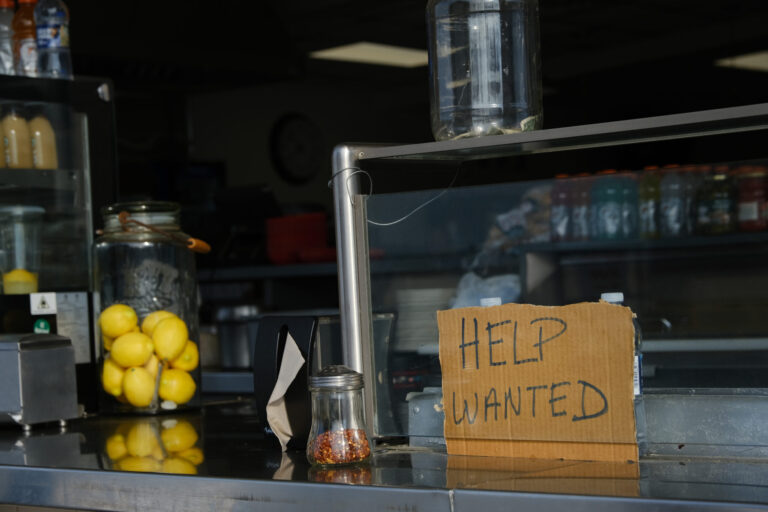 HELP
WANTED